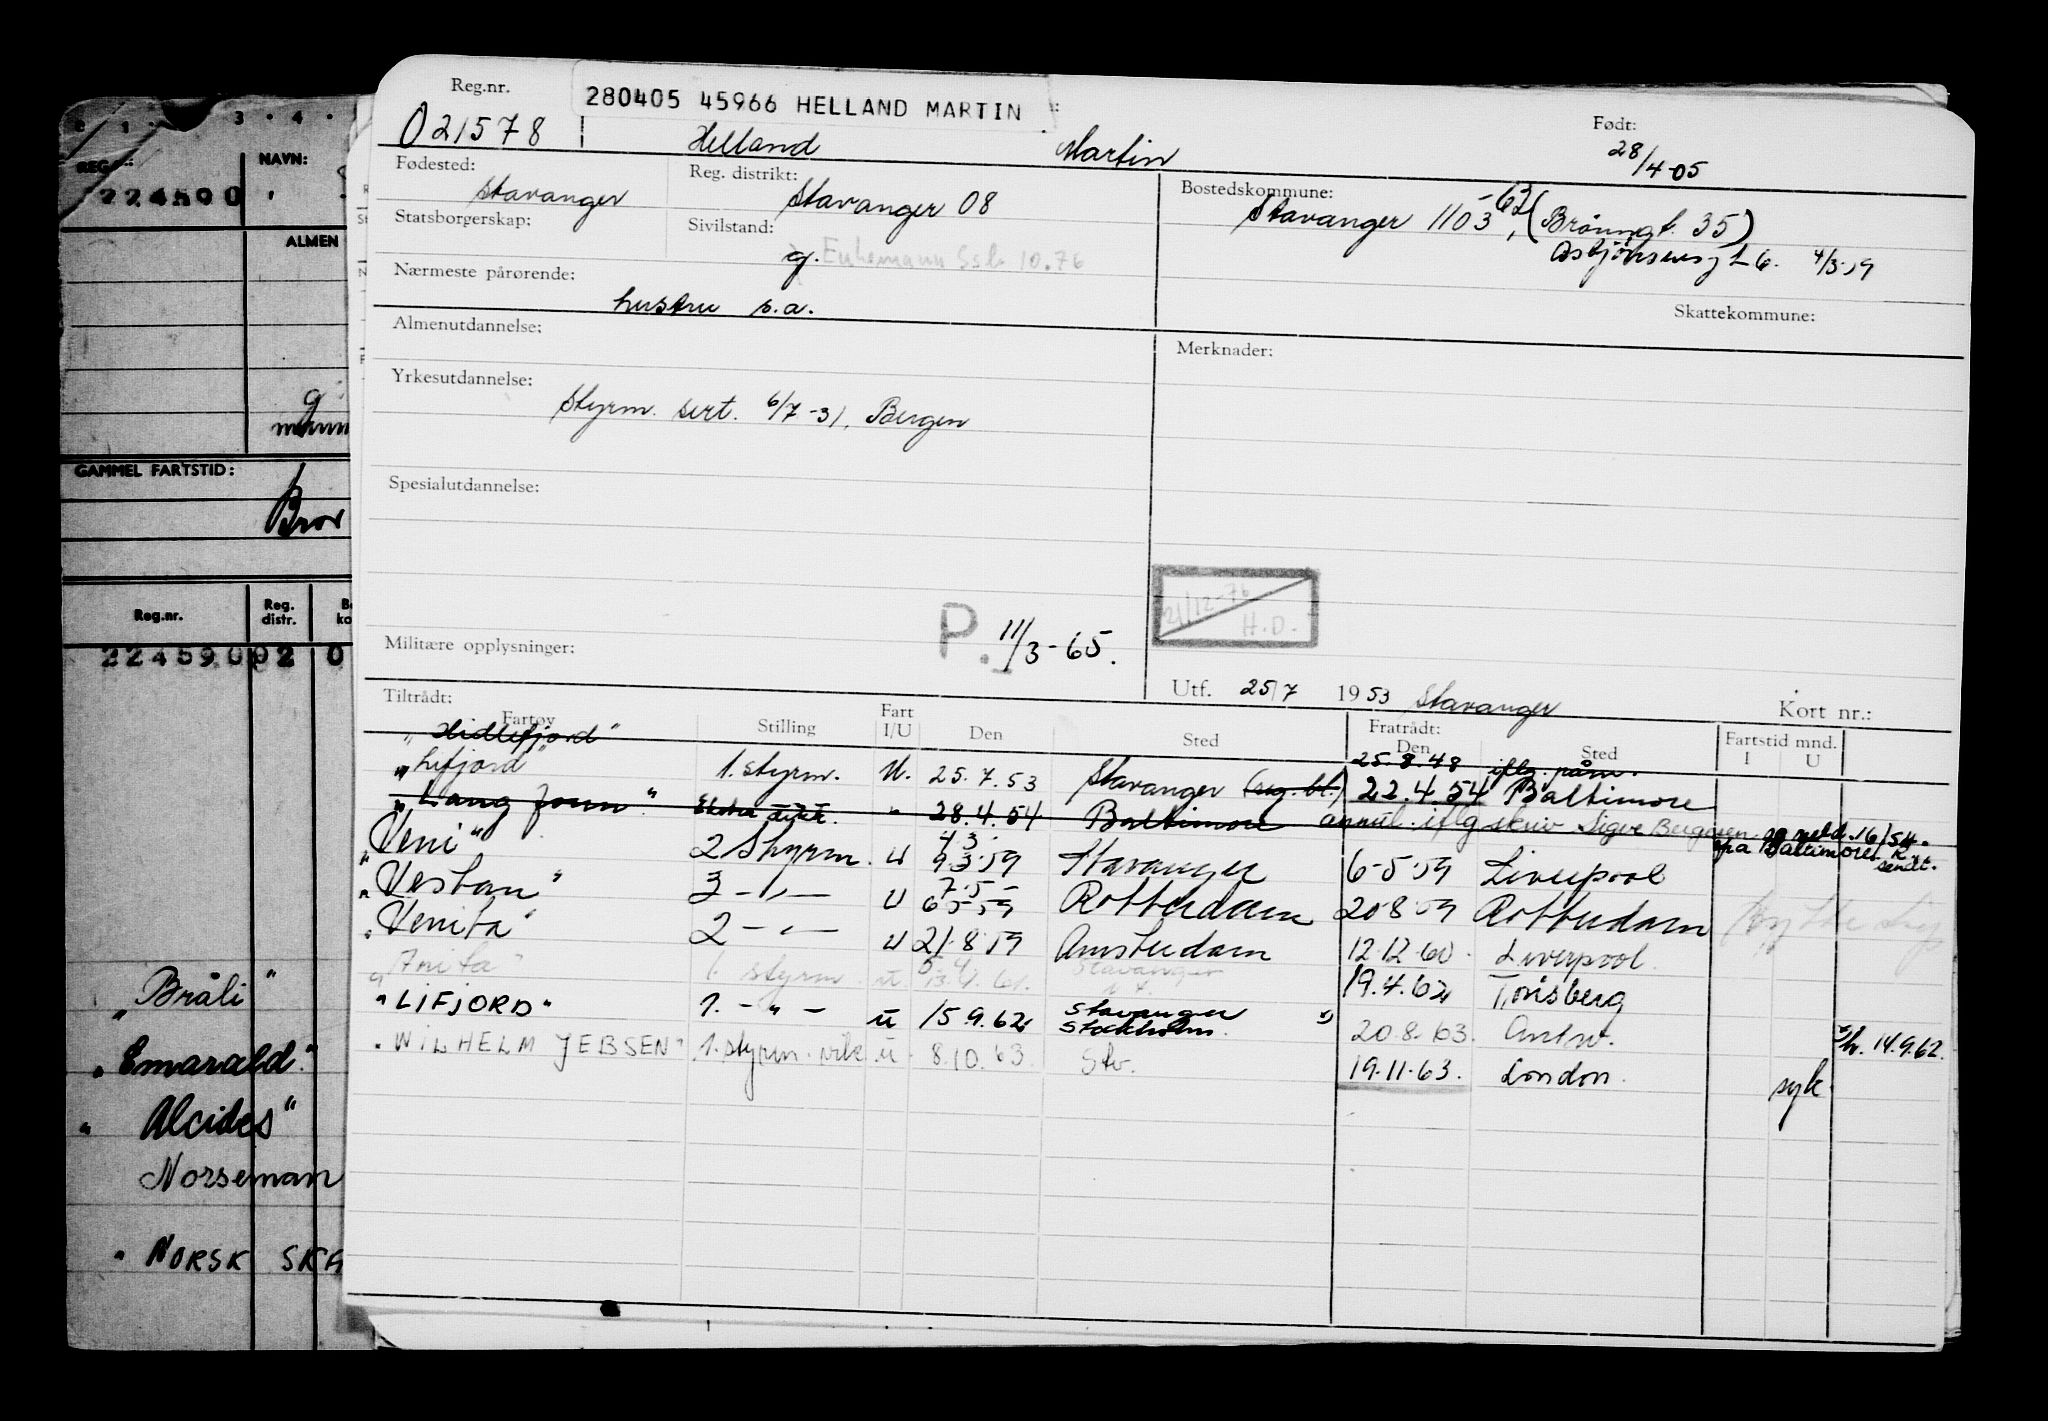 Reg.nr.
280405 45966 HELLAND MARTIN
Født:
021578
Helland
Martin
28/4-05
Fødested:
Stavanger
Reg. distrikt:
Stavanger 08
Bostedskommune:
Stavanger 1103
-62
35)
Statsborgerskap:
Sivilstand:
g. Enkemann 10.76
4/3-59
Nærmeste pårørende:
hustru s.a.
Skattekommune:
Almenutdannelse:
Merknader:
Yrkesutdannelse:
Styrm. sert. 6/7-31, Bergen
Spesialutdannelse:
21/12-76
H.D.
Militære opplysninger:
P. 11/3-65.
Utf. 25/7 1953 Stavanger
Kort nr.:
Tiltrådt:
Fartøy
Stilling
Fart
I/U
Den
Sted
Fratrådt:
Den
Sted
Fartstid mnd.
I
U
"Hidlefjord"
25.8.48 iflg. påm.
"Lifjord" 1. styrm. U. 25.7.53 Stavanger 22.4.54 Baltimore
" 28.4.54 Baltimore annul. iflg skriv
"Veni" 2 Styrm. U 4.3. 9.3.59 Stavanger 6-5-59 Liverpool
"Vestan" 3 -"- U 7.5- 6.5.59 Rotterdam 20-8-59 Rotterdam
"Venita" 2 -"- U 21.8.59 Amsterdam 12.12.60 Liverpool
"Anita" 1. styrm. U Stavanger 19.4.62 Tønsberg
"LIFJORD" 1. -"- U 15.9.62 Stavanger Stockholm. 20.8.63. Antw. 14.9.62.
"WILHELM JEBSEN" 1. styrm. U. 8.10.63. Stv. 19.11.63. London. syk
REG.NR.:
NAVN:
224590
ALMEN
g
GAMMEL FARTSTID:
Bror
Reg.nr.
Reg.
distr.
22459002 0
"Bråli"
"Emarald"
"Alcides"
Norseman
"NORSK SKA